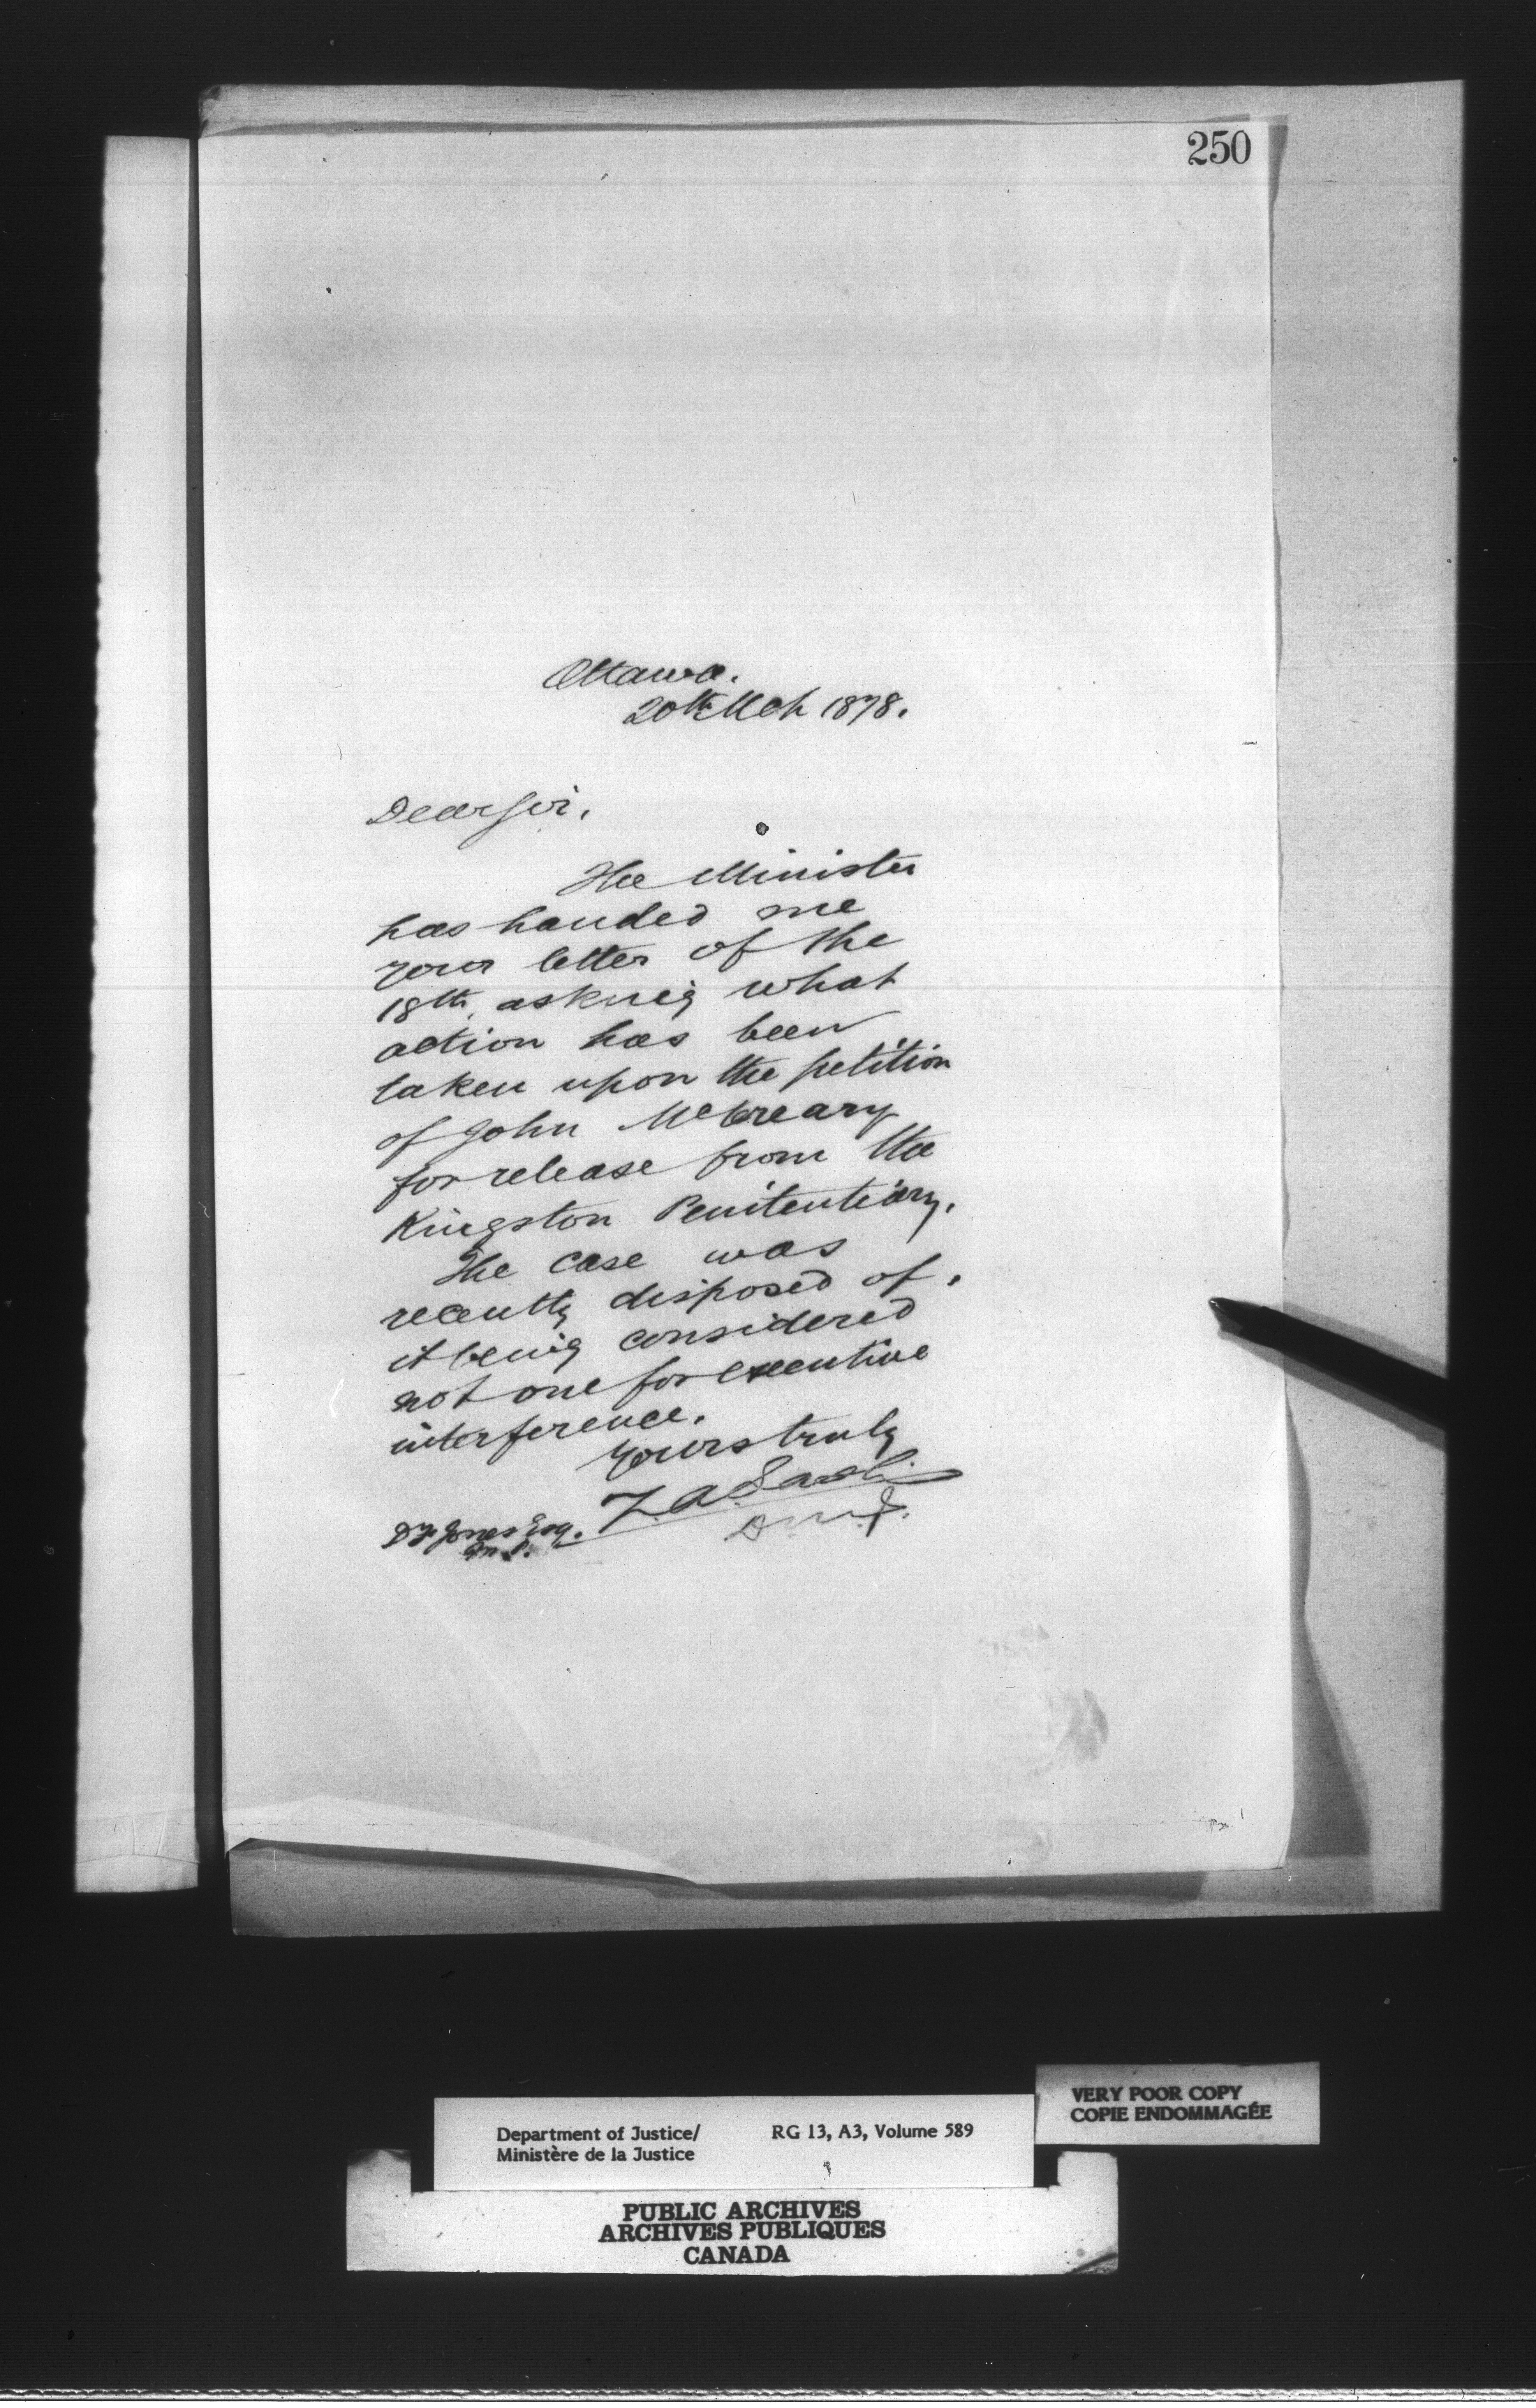 250
Ottawa.
20th Mch 1878.
Dear Sir,
The Minister
has handed me
your letter of the
18th, asking what
action has been
taken upon the petition
of John McCreary
for release from the
Kingston Penitentiary.
The case was
recently disposed of,
it being considered
not one for executive
interference.
Yours truly
Z A Lash
D.M.J.
D J Jones Esq.
M.P.
VERY POOR COPY
COPIE ENDOMMAGÉE
Department of Justice/ RG 13, A3, Volume 589
Ministère de la Justice
PUBLIC ARCHIVES
ARCHIVES PUBLIQUES
CANADA